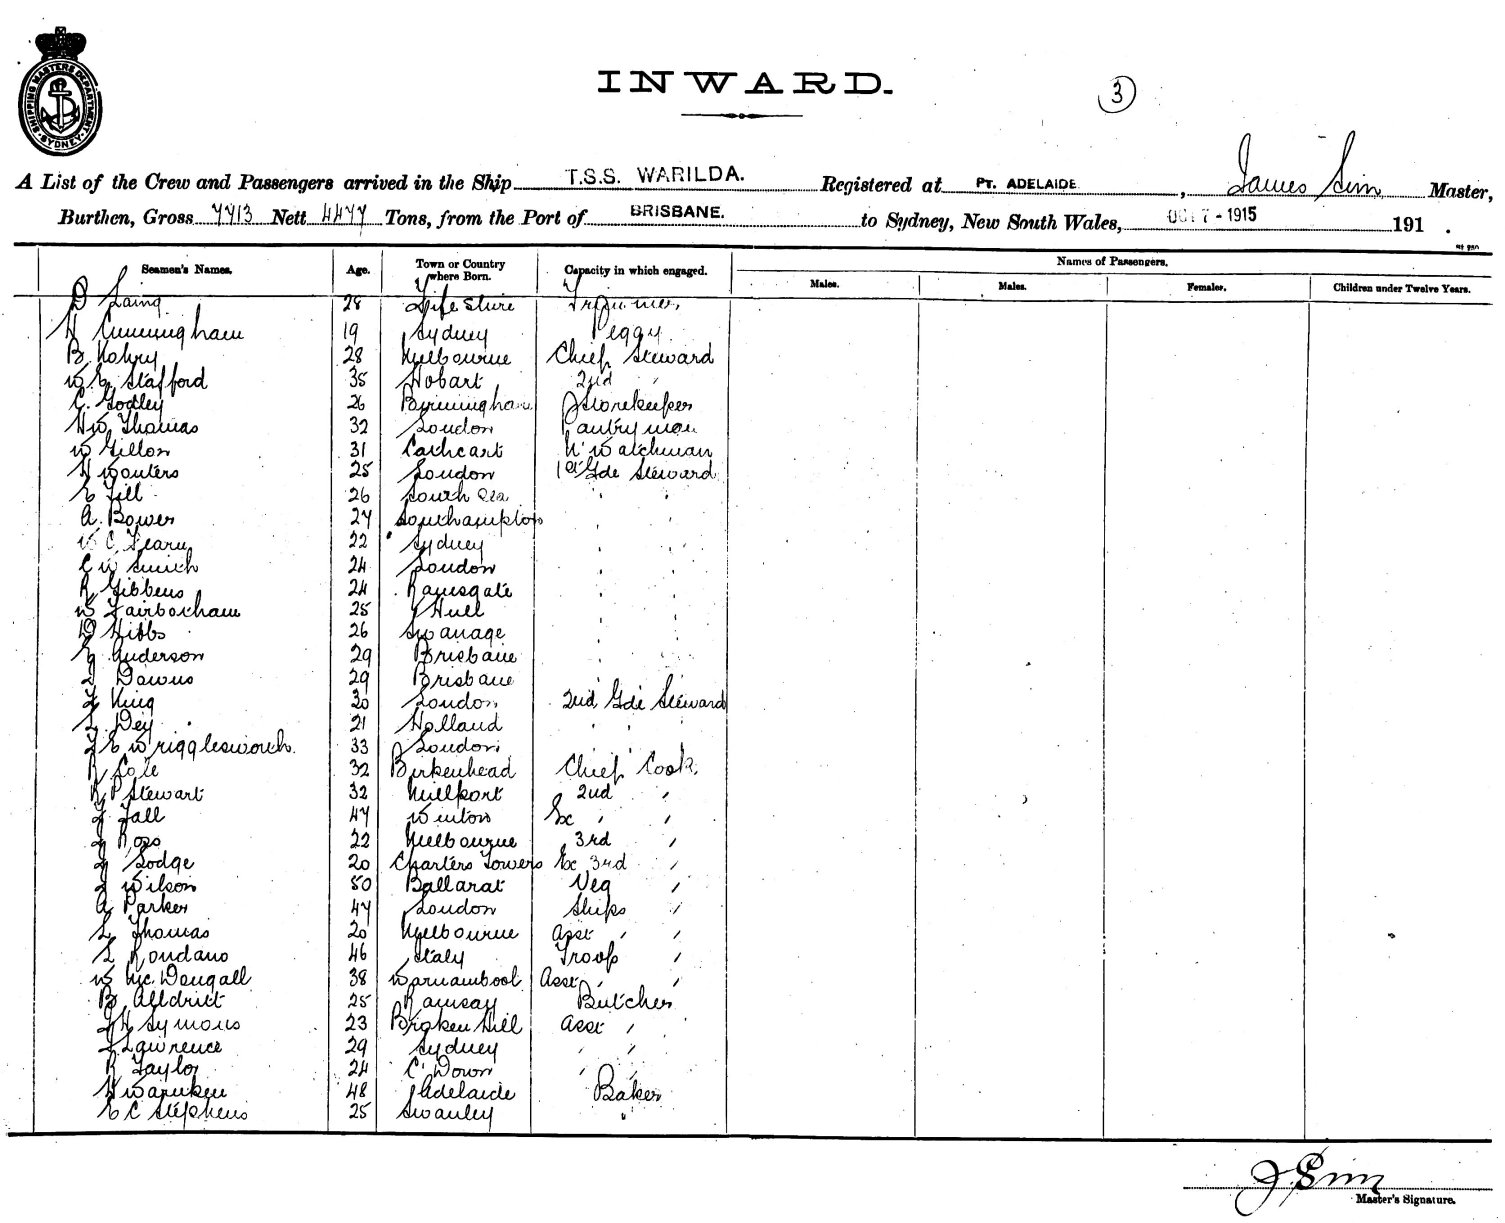 INWARD.
3
SHIPPING MASTERS DEPARTMENT SYDNEY
A List of the Crew and Passengers arrived in the Ship T.S.S. WARILDA. Registered at PT. ADELAIDE, James Sim Master,
Burthen, Gross 7713 Nett 4477 Tons, from the Port of BRISBANE. to Sydney, New South Wales, OCT 7 - 1915 191 .
Seamen's Names. Age. Town or Country where Born. Capacity in which engaged. Names of Passengers.
Males. Males. Females. Children under Twelve Years.
D Laing 28 Fifeshire Trimmer
H Cunningham 19 Sydney Peggy
B. 28 Melbourne Chief Steward
W E Stafford 35 Hobart 2nd "
C. Godley 26 Birmingham Storekeeper
H W Thomas 32 London Pantryman
W Gillon 31 Cathcart N' Watchman
H Wouters 25 London 1st Gde Steward
E Fill 26 South Sea " "
A. Bower 27 Southampton " "
W C Fearn 22 Sydney " "
C W Smith 24 London " "
R Gibbens 24 Ramsgate " "
W 25 Hull " "
D Hibbs 26 Swanage " "
E Anderson 29 Brisbane " "
Downs 29 Brisbane
King 30 London 2nd Gde Steward
Dey 21 Holland " "
E Wrigglesworth 33 London
R Cole 32 Birkenhead Chief Cook
R P Stewart 32 Millport 2nd "
Fall 47 Winton Ex " "
J Ross 22 Melbourne 3rd "
Lodge 20 Charters Towers Ex 3rd "
J Wilson 50 Ballarat Veg "
A Parker 47 London Ships "
L Thomas 20 Melbourne Asst " "
Rondano 46 Italy Troop "
W McDougall 38 Warnambool Asst " "
B. Alldritt 25 Ramsay Butcher
J H Symons 23 Broken Hill Asst "
Lawrence 29 Sydney " "
R Taylor 24 C' Down " "
H Warnken 48 Adelaide Baker
E C Stephens 25 Swanley "
J. Sim
Master's Signature.